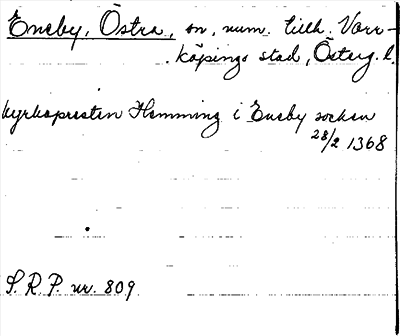 Eneby, Östra, sn, num. tillh. Norr-
köpings stad, Österg. l.
kyrkopresten Hemming i Eneby socken
28/2 1368
S.R.P. nr. 809